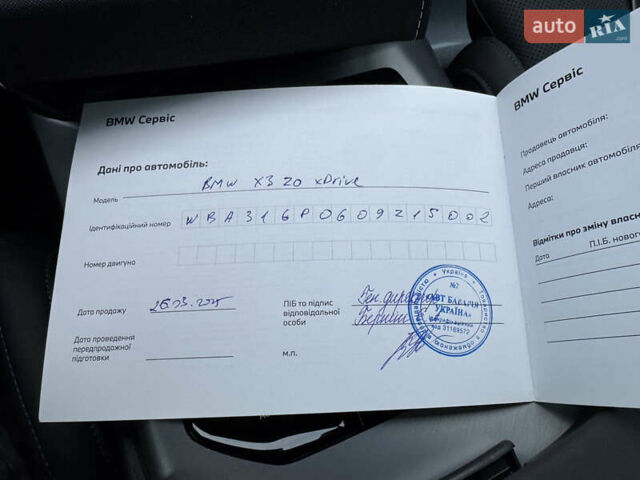 auto RIA
.com
BMW Сервіс
Дані про автомобіль:
Модель BMW X3 20 xDrive
Ідентифікаційний номер WBA316P0609Z15002
Номер двигуна
Дата продажу 26.03.2025
ПІБ та підпис відповідальної особи
Ген. директор
Дата проведення передпродажної підготовки
м.п.
Україна
№2
УКРАЇНА»
код 31169572
BMW Сервіс
Продавець автомобіля:
Адреса продавця:
Перший власник автомобіля
Адреса:
Відмітки про зміну
Дата
П.І.Б. нового